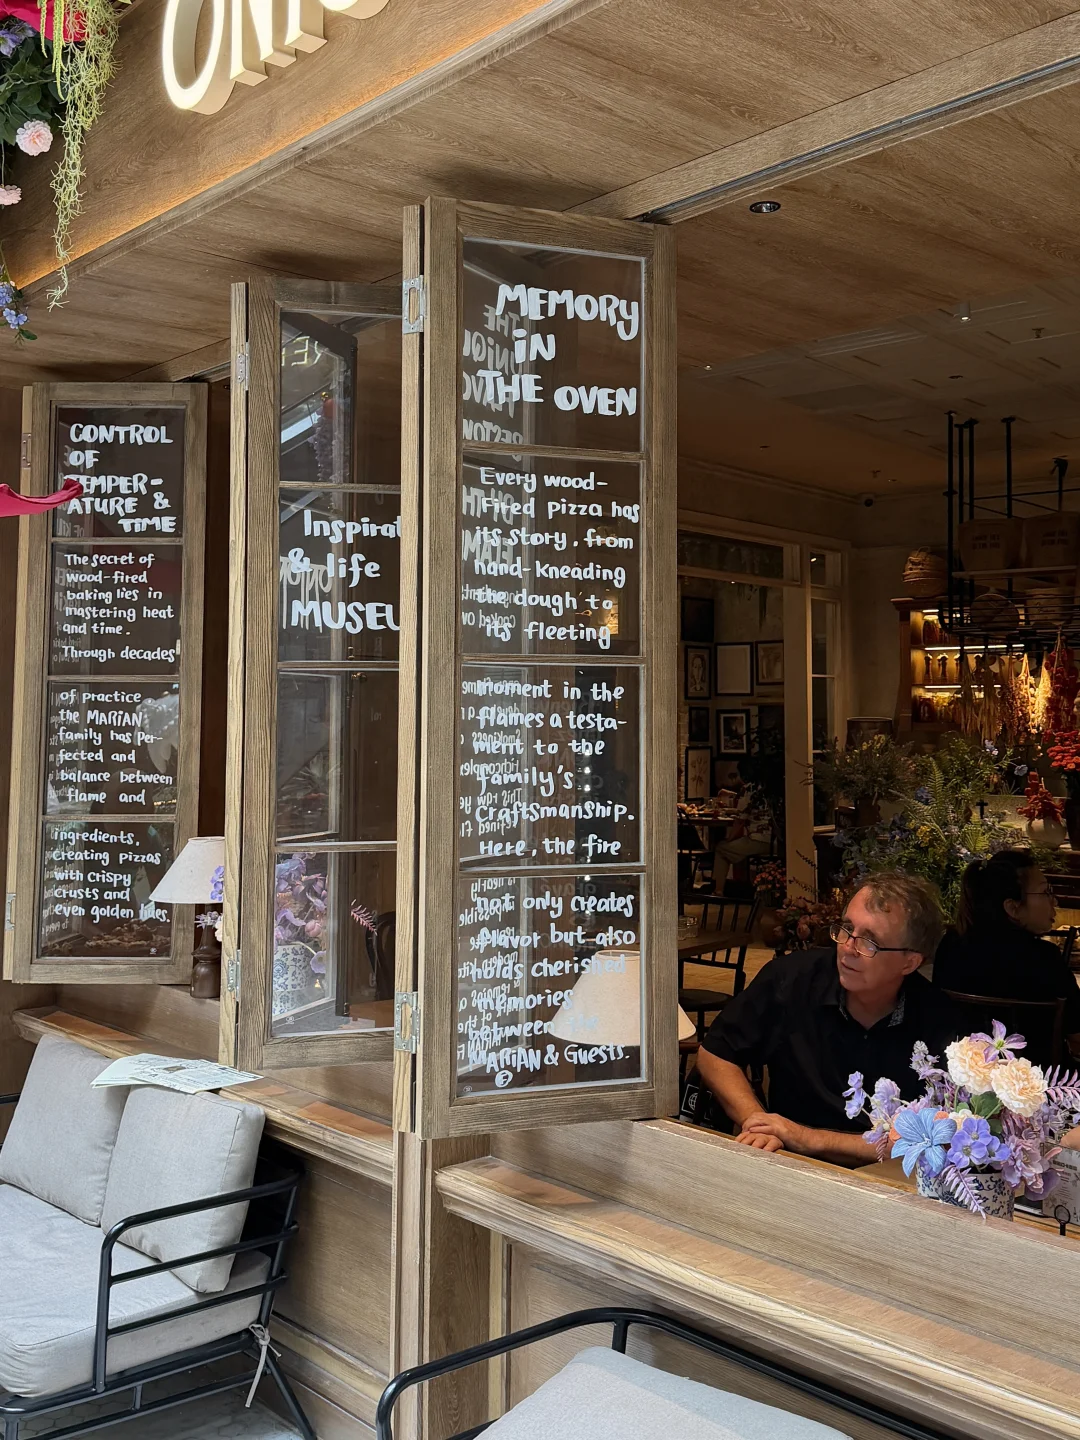 CONTROL
OF
TEMPER-
ATURE &
TIME
The secret of
wood-fired
baking lies in
mastering heat
and time.
Through decades
of practice
the MARIAN
family has per-
fected and
balance between
flame and
ingredients,
creating pizzas
with crispy
crusts and
even golden
Inspirat
& life
MUSEU
MEMORY
iN
THE OVEN
Every wood-
Fired pizza has
its story. from
hand-kneading
the dough to
its fleeting
moment in the
flames a testa-
ment to the
family's
craftsmanship.
Here, the fire
not only creates
flavor but also
holds cherished
memories
between the
MARIAN & Guests.